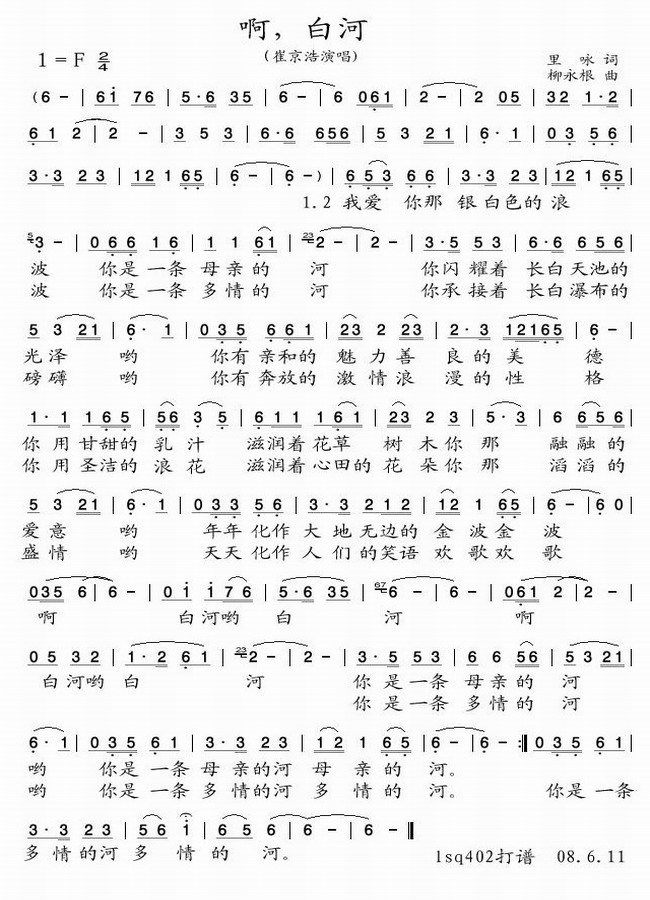 啊，白河
1=F 2/4
(崔京浩演唱)
里 咏 词
柳永根 曲
(6 - | 6i 76 | 5·6 35 | 6 - | 6 061 | 2 - | 2 05 | 32 1·2 |
61 2 | 2 - | 3 5 3 | 6·6 656 | 5 3 21 | 6· 1 | 03 56 |
3·3 23 | 121 65 | 6 - | 6 -) | 653 66 | 3·3 23 | 121 65 |
1.2 我爱 你那 银白色的浪
5 3 - | 066 16 | 1 1 61 | 23 2 - | 2 - | 3·5 53 | 6·6 656 |
波 你是一条 母亲的 河 你闪耀着 长白天池的
波 你是一条 多情的 河 你承接着 长白瀑布的
5 3 21 | 6· 1 | 035 661 | 23 2 23 | 2·3 12165 | 6 - |
光泽 哟 你有亲和的 魅力善 良的美 德
磅礴 哟 你有奔放的 激情浪 漫的性 格
1·1 165 | 56 3 5 | 611 161 | 23 23 | 5·3 | 6 656 |
你用甘甜的 乳汁 滋润着花草 树木你那 融融的
你用圣洁的 浪花 滋润着心田的 花朵你那 滔滔的
5 3 21 | 6· 1 | 033 56 | 3·3 212 | 12 1 65 | 6 - | 60 |
爱意 哟 年年化作 大地无边的 金波金 波
盛情 哟 天天化作 人们的笑语 欢歌欢 歌
035 6 | 6 - | 0i i76 | 5·6 35 | 67 6 - | 6 - | 061 2 | 2 - |
啊 白河哟 白 河 啊
05 32 | 1·2 61 | 23 2 - | 2 - | 3·5 53 | 6 6 56 | 5 3 21 |
白河哟 白 河 你是一条 母亲的 河
你是一条 多情的 河
6· 1 | 035 61 | 3·3 23 | 12 1 65 | 6 - | 6 - :‖ 035 61 |
哟 你是一条 母亲的河 母亲的 河。
哟 你是一条 多情的河 多情的 河。 你是一条
3·3 23 | 56 i | 6 56 | 6 - | 6 - ‖
多情的河 多 情的 河。
lsq402打谱 08.6.11